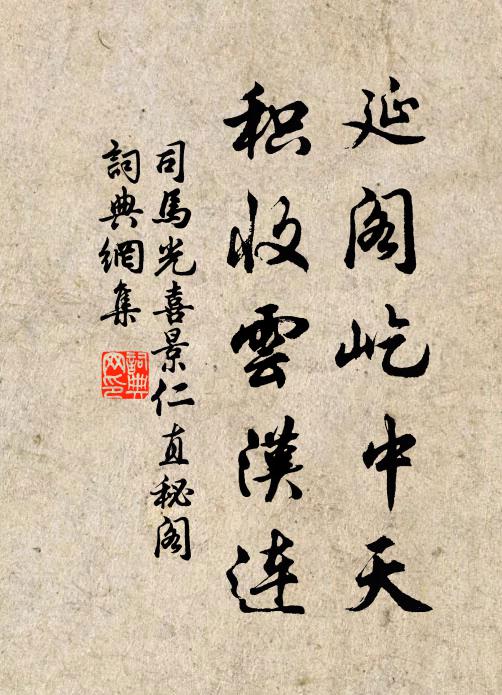 延阁屹中天
积收雲漢連
司馬光喜景仁直秘阁
詞典網集
詞典网印